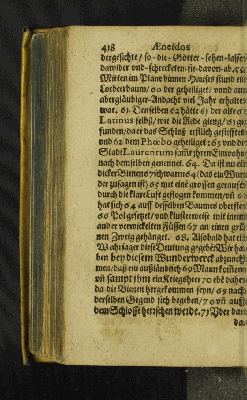 438 Æneidos
dergesichte / so-die-Götter-sehen-lassen
dawider und-schrecketen-sie-davon-ab. 59
Mitten im Plane binnen Hauses stund ein
Lorbeerbaum / 60 der geheiliget / vnnd aus
abergläubiger-Andacht viel Jahr erhalten
war. 61 Denselben 62 hätte 63 der alte
Latinus selbst / wie die Rede gieng / 61
funden / da er das Schloß erstlich gestifftet
und 62 dem Phœbo geheiliget: 63 und die
Stadt Laurentum samt ihren Einwohnern
nach demselben genennet. 64. Da ist nu ein
dicker Bienen schwarm 64 (das ein Wunder
zusagen ist) 65 mit eine grossen gerausch
durch die klare Luft geflogen kommen / vñ
hat sich 64 auff desselben Baumes oberster
66 Pol gesetzet / und klusterweise mit einem
ander verwickelten Füssen 67 an einen grü-
nen Zweig gehänget. 68. Alsobald hat ein
Wahrsager diese Deutung gegeben: Wir ha-
ben bey diesem Wunderwerck abzuneh-
men / daß ein außländisch 69 Mann kom̃en
vñ sampt ihm ein Kriegsheer 70 ebē daher
da die Bienen hergekommen seyn / 69 nach
derselben Gegend sich begeben / 70 vñ auff
dem Schlosse herrschen werde. 71 Uber dar
da-